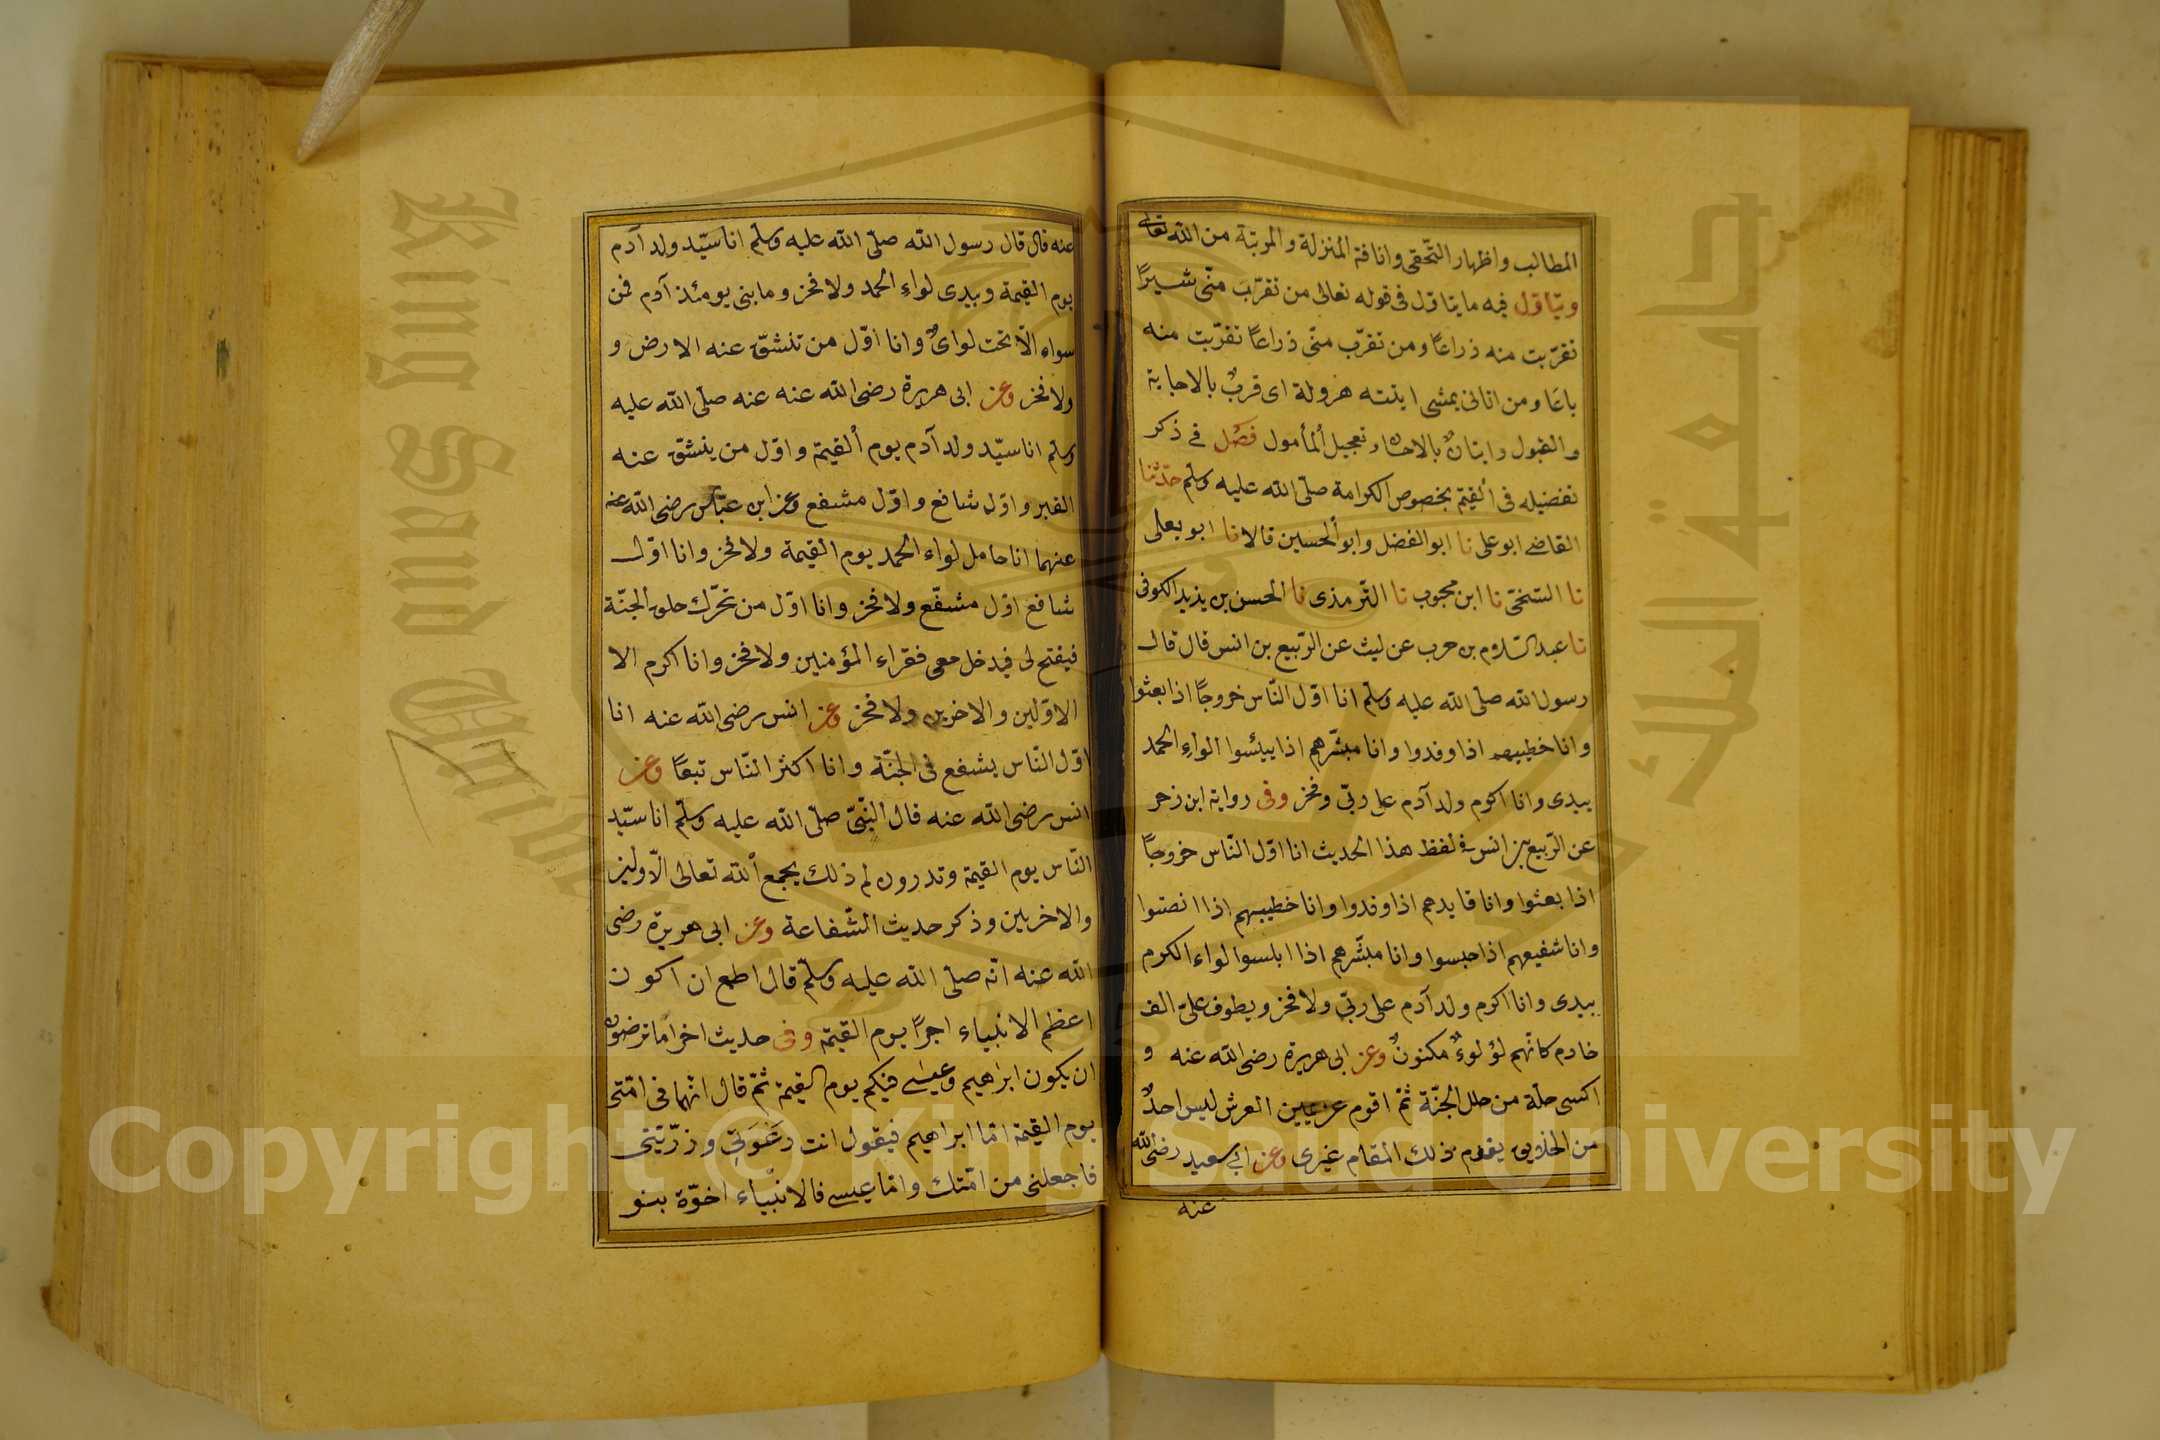 المطالب واظهار التّحقى وانافة المنزلة والمرتبة من الله تعالى
ويتاوّل فيه ما يتاوّل فى قوله تعالى من تقرّبَ منّى شبرًا
تقرّبت منه ذراعًا ومن تقرّب منّى ذراعًا تقرّبت منه
باعًا ومن اتانى يمشى اتيته هرولة اى قربٌ بالاجابة
والقبول واتيانٌ بالاحسان وتعجيل المأمول فصل فى ذكر
تفضيله فى القيٰمة بخصوص الكرامة صلّى الله عليه وسلّم حدّثنا
القاضى ابو على نا ابو الفضل وابو الحسين قالا نا ابو يعلى
نا السّنجىّ نا ابن محبوب نا التّرمذى نا الحسن بن يزيد الكوفى
نا عبد السّلام بن حرب عن ليث عن الرّبيع بن انس قال قال
رسول الله صلّى الله عليه وسلّم انا اوّل النّاس خروجًا اذا بعثوا
وانا خطيبهم اذا وفدوا وانا مبشّرهم اذا يئسوا الواءِ الحمد
بيدى وانا اكرم ولد آدم على ربّى وفخز وفى رواية ابن زحر
عن الرّبيع بن انس فى لفظ هذا الحديث انا اوّل النّاس خروجًا
اذا بعثوا وانا قايدهم اذا وفدوا وانا خطيبهم اذا انصتوا
وانا شفيعهم اذا حبسوا وانا مبشّرهم اذا ابلسوا لواء الكرم
بيدى وانا اكرم ولد آدم على ربّى ولا فخز ويطوف علىّ الف
خادم كانّهم لؤلوءٌ مكنونٌ وعن ابى هريرة رضى الله عنه و
اكسى حلّة من حلل الجنّة ثمّ اقوم عن يمين العرش ليس احدٌ
من الخلايق يقوم ذلك المقام غيرى وعن ابى سعيد رضى الله
عنه
عنه قال قال رسول الله صلّى الله عليه وسلّم انا سيّد ولد آدم
يوم القيمة وبيدى لواءِ الحمد ولا فخز وما بنى يومئذ آدم فمن
سواه الّا تحت لوائىٌ وانا اوّل من تنشقّ عنه الارض و
ولا فخز وعن ابى هريرة رضى الله عنه عنه صلّى الله عليه
وسلّم انا سيّد ولد آدم يوم القيٰمة واوّل من ينشقّ عنه
القبر واوّل شافع واوّل مشفع وعن ابن عبّاس رضى الله عنه
عنهما انا حامل لواء الحمد يوم القيمة ولا فخز وانا اوّل
شافع اوّل مشفّع ولا فخز وانا اوّل من تحرّك حلق الجنّة
فيفتح لى فيدخل معى فقراء المؤمنين ولا فخز وانا اكرم الا
الاوّلين والاخرين ولا فخز وعن انس رضى الله عنه انا
اوّل النّاس يشفع فى الجنّة وانا اكثر النّاس تبعًا وعن
انس رضى الله عنه قال النّبىّ صلّى الله عليه وسلّم انا سيّد
النّاس يوم القيمة وتدرون لم ذلك يجمع الله تعالى الاّولين
والاخرين وذكر حديث الشّفاعة وعن ابى هريرة رضى
الله عنه انّه صلّى الله عليه وسلّم قال اطمع ان اكون
اعظم الانبياء اجرًا يوم القيمة وفى حديث اخر اما ترضون
ان يكون ابراهيم وعيسى فيكم يوم القيمة ثمّ قال انّهما فى امّتى
يوم القيمة امّا ابراهيم فيقول انت دَعْوَتِى وذرّيّتى
فاجعلنى من امّتك وامّا عيسى فالانبياء اخوّة بنو
Copyright © King Saud University
King Saud University
جامعة الملك سعود
1957